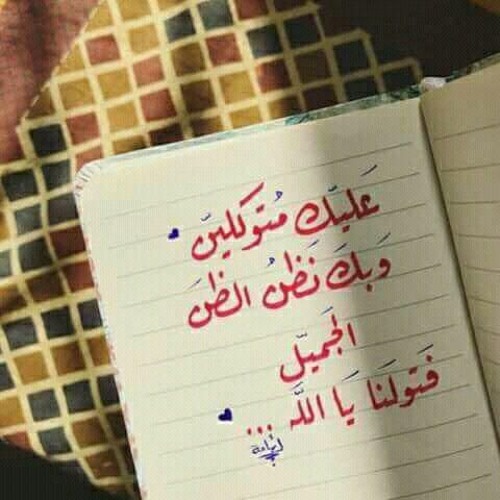 عَليّك مُتوكليّن
وَبكَ نَظنُ الظنَ
الجَميّل
فَتولَنا يَا اللَّه ...